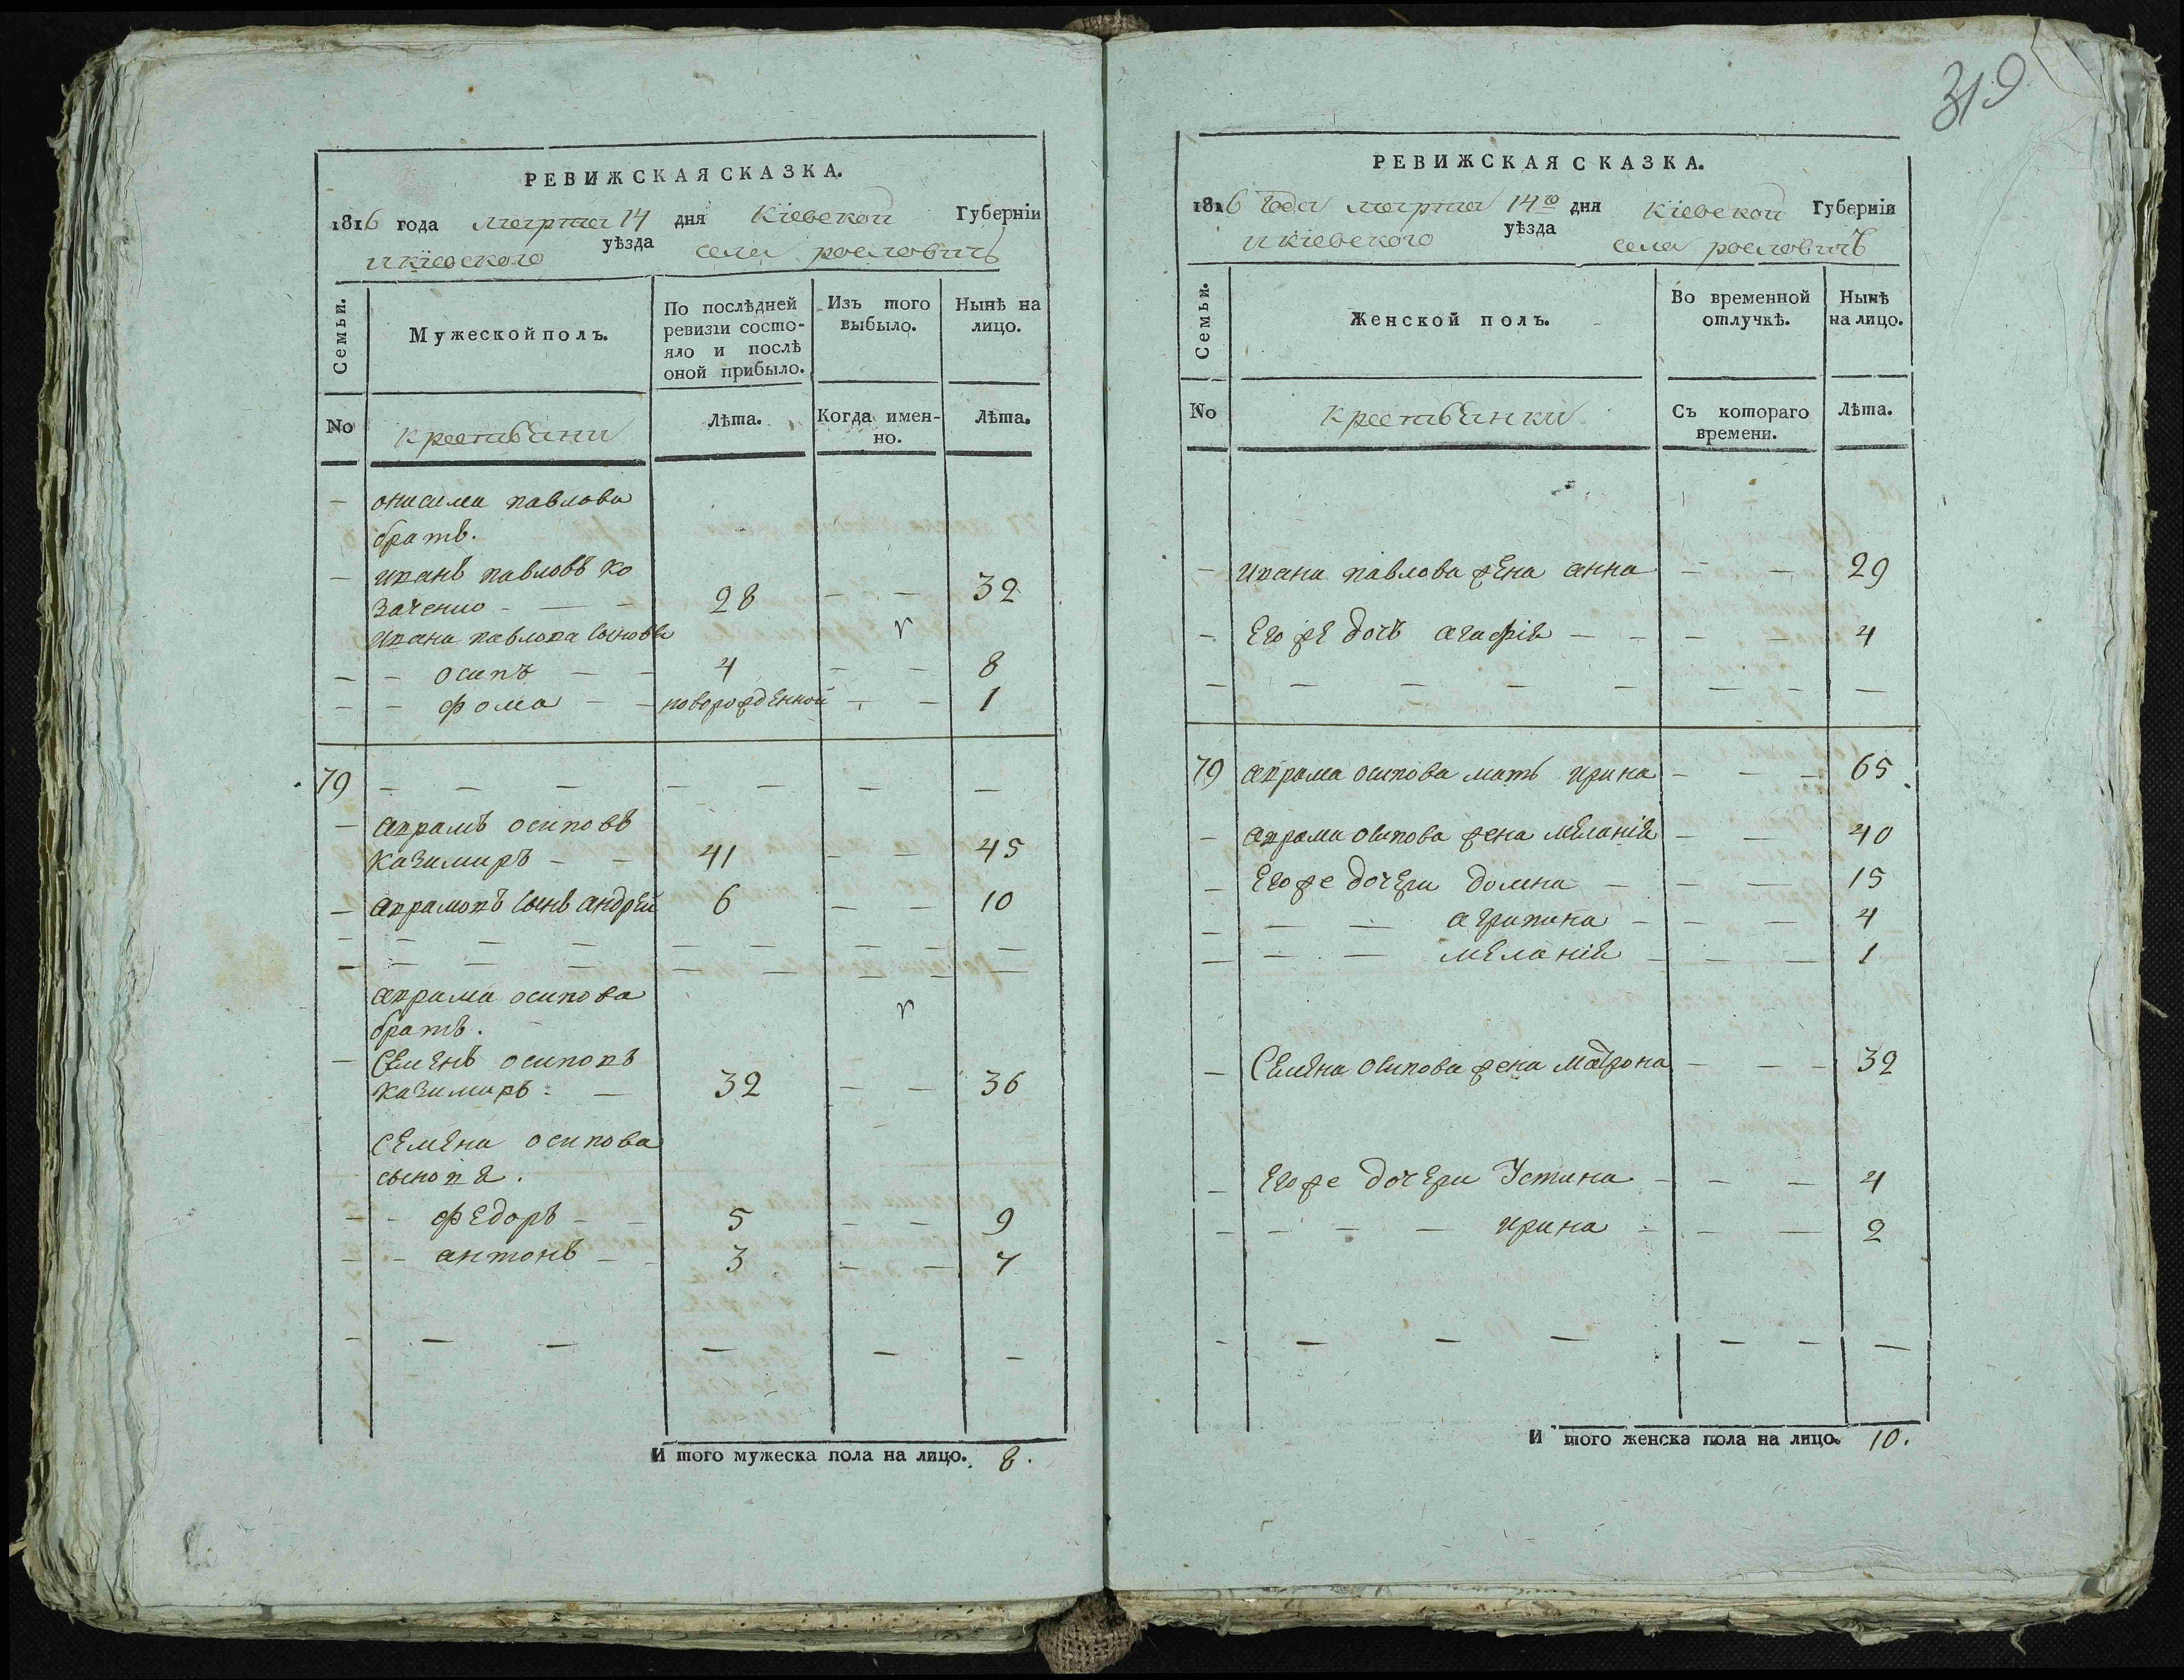 319
РЕВИЖСКАЯ СКАЗКА.
1816 года марта 14 дня Кіевской Губерніи
и кіевского уѣзда села рословичъ
Семьи.
Мужеской полъ.
По послѣдней ревизіи состо-
яло и послѣ
оной прибыло.
Изъ того
выбыло.
Нынѣ на
лицо.
No
крестьяни
Лѣта.
Когда имен-
но.
Лѣта.
– онисима павлова
братъ.
– иванъ павловъ ко
заченко – – – 28 – – 32
Ивана павлова сыновья
– – осипъ – – 4 – – 8
– – фома – – новорожденной – – 1
79 – – – – – – –
– аврамъ осиповъ
казимиръ – – 41 – – 45
– аврамовъ сынъ андрей 6 – – 10
– – – – – – – – –
– – – – – – – – –
аврама осипова
братъ.
– Семенъ осиповъ
казимиръ – – 32 – – 36
семена осипова
сыновя.
– – федоръ – – 5 – – 9
– – антонъ – – 3 – – 7
– – – – – –
И того мужеска пола на лицо. 8.
РЕВИЖСКАЯ СКАЗКА.
1816 года марта 14го дня Кіевской Губерніи
и кіевского уѣзда села рословичъ
Семьи.
Женской полъ.
Во временной
отлучкѣ.
Нынѣ
на лицо.
No
Крестьянки
Съ котораго
времени.
Лѣта.
– Ивана павлова жена анна – – 29
– Его же дочъ агафія – – – – 4
– – – – – – – –
79 аврама осипова мать ирина – – – 65
– аврама осипова жена меланія – – 40
– Его же дочери домна – – – 15
– – – агрипина – – – 4
– – – меланія – – – 1
– Семена осипова жена матрона – – – 32
– Его же дочери Устина – – – 4
– – – – ирина – – – 2
– – – – – – –
И того женска пола на лицо. 10.